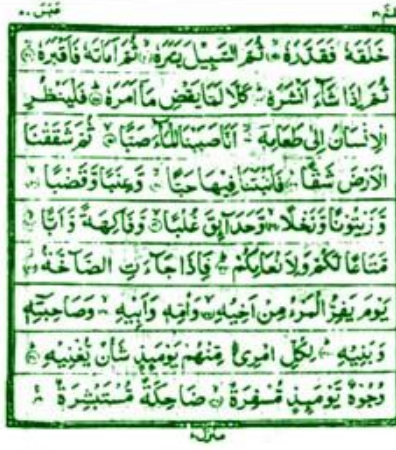 عَبَسَ ٨٠
عم ٣٠
خَلَقَهٗ فَقَدَّرَهٗ ۙ ثُمَّ السَّبِيْلَ يَسَّرَهٗ ۙ ثُمَّ اَمَاتَهٗ فَاَقْبَرَهٗ ۙ
ثُمَّ اِذَا شَآءَ اَنْشَرَهٗ ؕ كَلَّا لَمَّا يَقْضِ مَاۤ اَمَرَهٗ ؕ فَلْيَنْظُرِ
الْاِنْسَانُ اِلٰى طَعَامِهٖۤ ۙ اَنَّا صَبَبْنَا الْمَآءَ صَبًّا ۙ ثُمَّ شَقَقْنَا
الْاَرْضَ شَقًّا ۙ فَاَنْۢبَتْنَا فِيْهَا حَبًّا ۙ وَّعِنَبًا وَّقَضْبًا ۙ
وَّزَيْتُوْنًا وَّنَخْلًا ۙ وَّحَدَآئِقَ غُلْبًا ۙ وَّفَاكِهَةً وَّاَبًّا ۙ
مَّتَاعًا لَّكُمْ وَلِاَنْعَامِكُمْ ؕ فَاِذَا جَآءَتِ الصَّآخَّةُ ۙ
يَوْمَ يَفِرُّ الْمَرْءُ مِنْ اَخِيْهِ ۙ وَاُمِّهٖ وَاَبِيْهِ ۙ وَصَاحِبَتِهٖ
وَبَنِيْهِ ؕ لِكُلِّ امْرِئٍ مِّنْهُمْ يَوْمَئِذٍ شَاْنٌ يُّغْنِيْهِ ؕ
وُجُوْهٌ يَّوْمَئِذٍ مُّسْفِرَةٌ ۙ ضَاحِكَةٌ مُّسْتَبْشِرَةٌ ۚ
منزل ٧